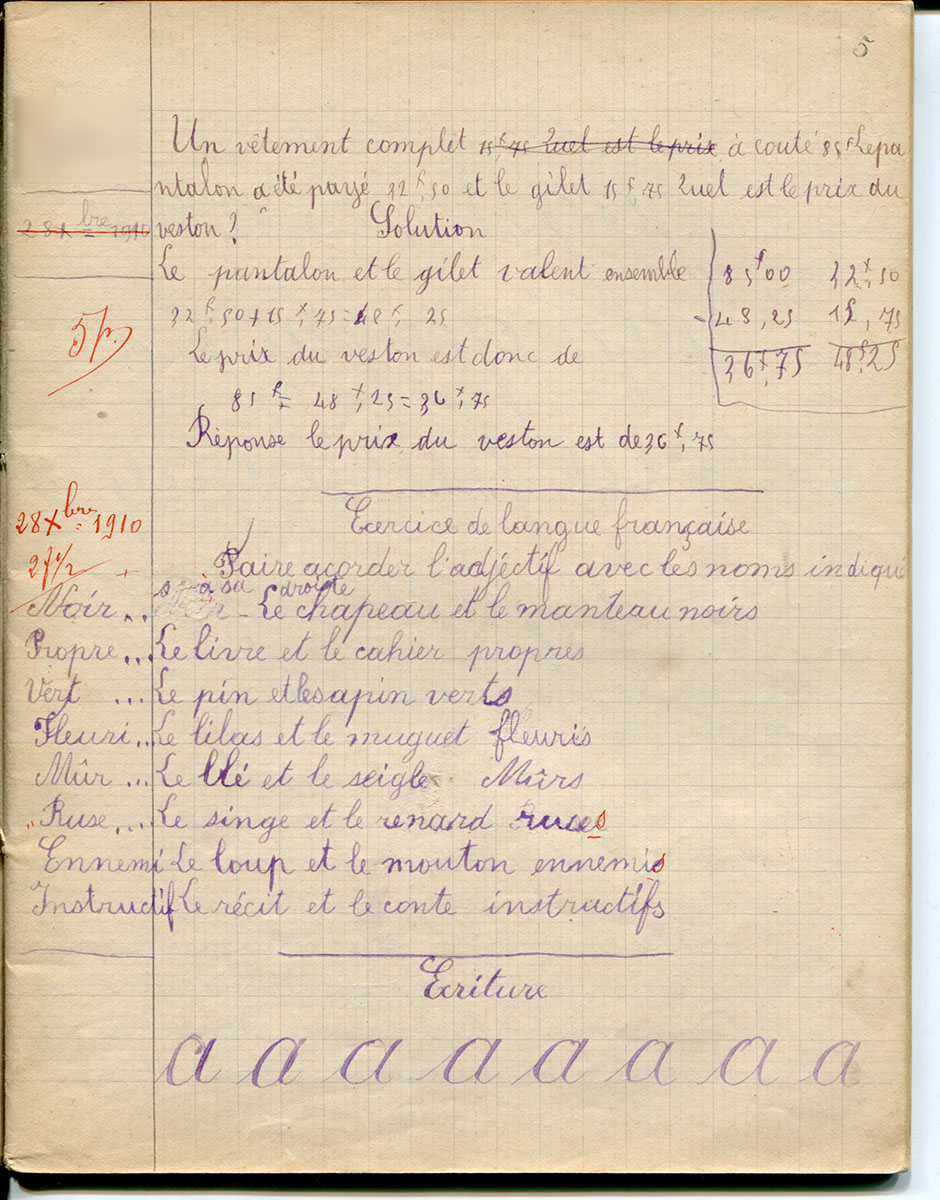 5
Un vêtement complet 15f,75 Quel est le prix à couté 85f Le pa
ntalon a été payé 32f,50 et le gilet 15f,75 Quel est le prix du
28 Xbre 1910
veston ?
Solution
Le pantalon et le gilet valent ensemble
32f,50 + 15f,75 = 48f, 25
85f00 32f,50
- 48,25 15,75
36f,75 48f,25
5p.
Le prix du veston est donc de
85f - 48f,25 = 36f,75
Réponse le prix du veston est de 36f,75
28 Xbre 1910
Exercice de langue française
27 1/2
Faire acorder l'adjectif avec les noms indiqué
s à sa droite
Noir .. Le chapeau et le manteau noirs
Propre ... Le livre et le cahier propres
Vert ... Le pin et le sapin verts
Fleuri .. Le lilas et le muguet fleuris
Mûr ... Le blé et le seigle Mûrs
Ruse ... Le singe et le renard ruses
Ennemi Le loup et le mouton ennemis
Instructif Le récit et le conte instructifs
Ecriture
a a a a a a a a